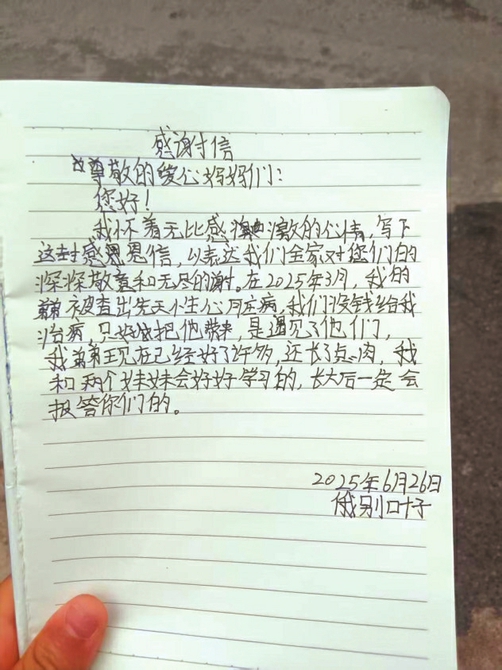 感谢信
尊敬的爱心妈妈们：
您好！
我怀着无比感激的心情，写下
这封感恩信，以表达我们全家对您们的
深深敬意和无尽的谢。在2025年3月，我的
弟弟被查出先天小生心月庄病，我们没钱给我
治病，只好把他带，是遇见了他们，
我弟弟现在已经好了许多，还长了点肉，我
和两个妹妹会好好学习的，长大后一定会
报答你们的。
2025年6月26日
俄别叶子